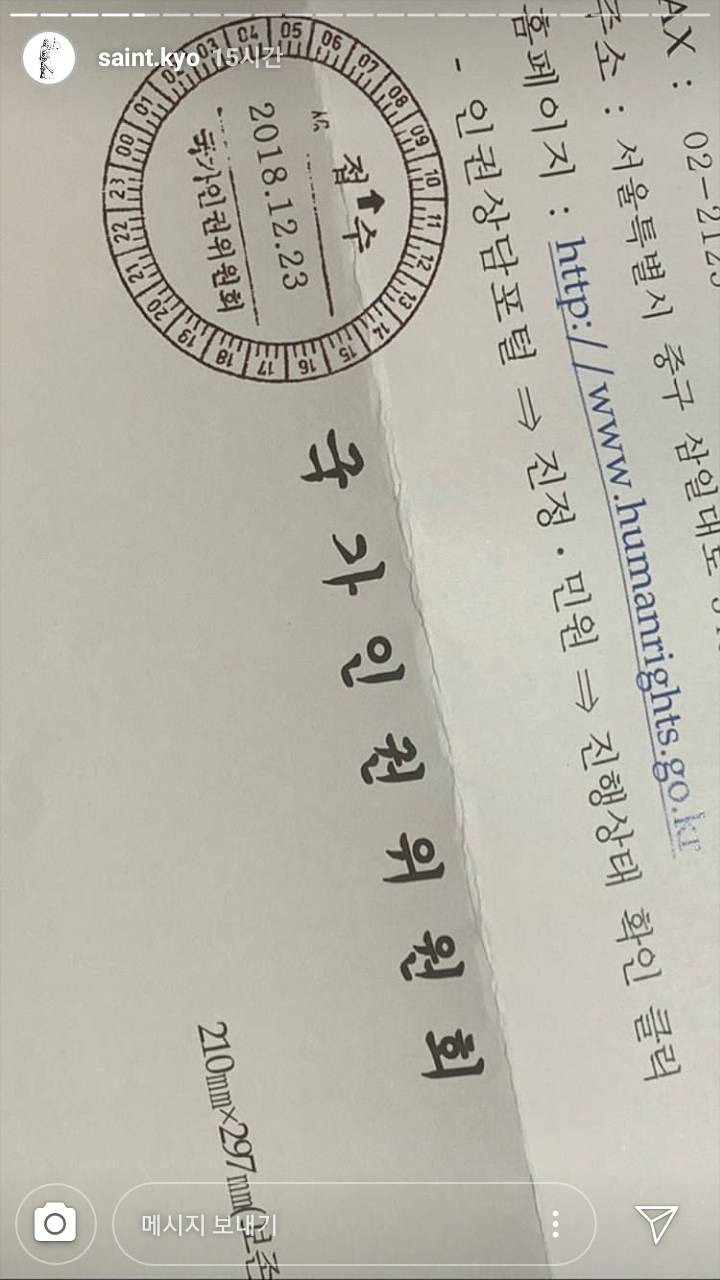 saint.kyo 15시간
AX : 02-212
주소 : 서울특별시 중구 삼일대로
홈페이지 : http://www.humanrights.go.kr
- 인권상담포털 ⇒ 진정·민원 ⇒ 진행상태 확인 클릭
00 01 02 03 04 05 06 07 08 09 10 11 12 13 14 15 16 17 18 19 20 21 22 23
접수
2018.12.23
국가인권위원회
국가인권위원회
210㎜×297㎜(보존
메시지 보내기